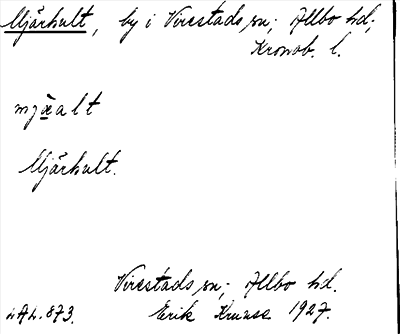 Mjärhult, by i Virestads sn; Allbo hd;
Kronob. l.
mjä̀alt
Mjärhult.
Virestads sn; Allbo hd.
Erik 1927.
LAL. 873.